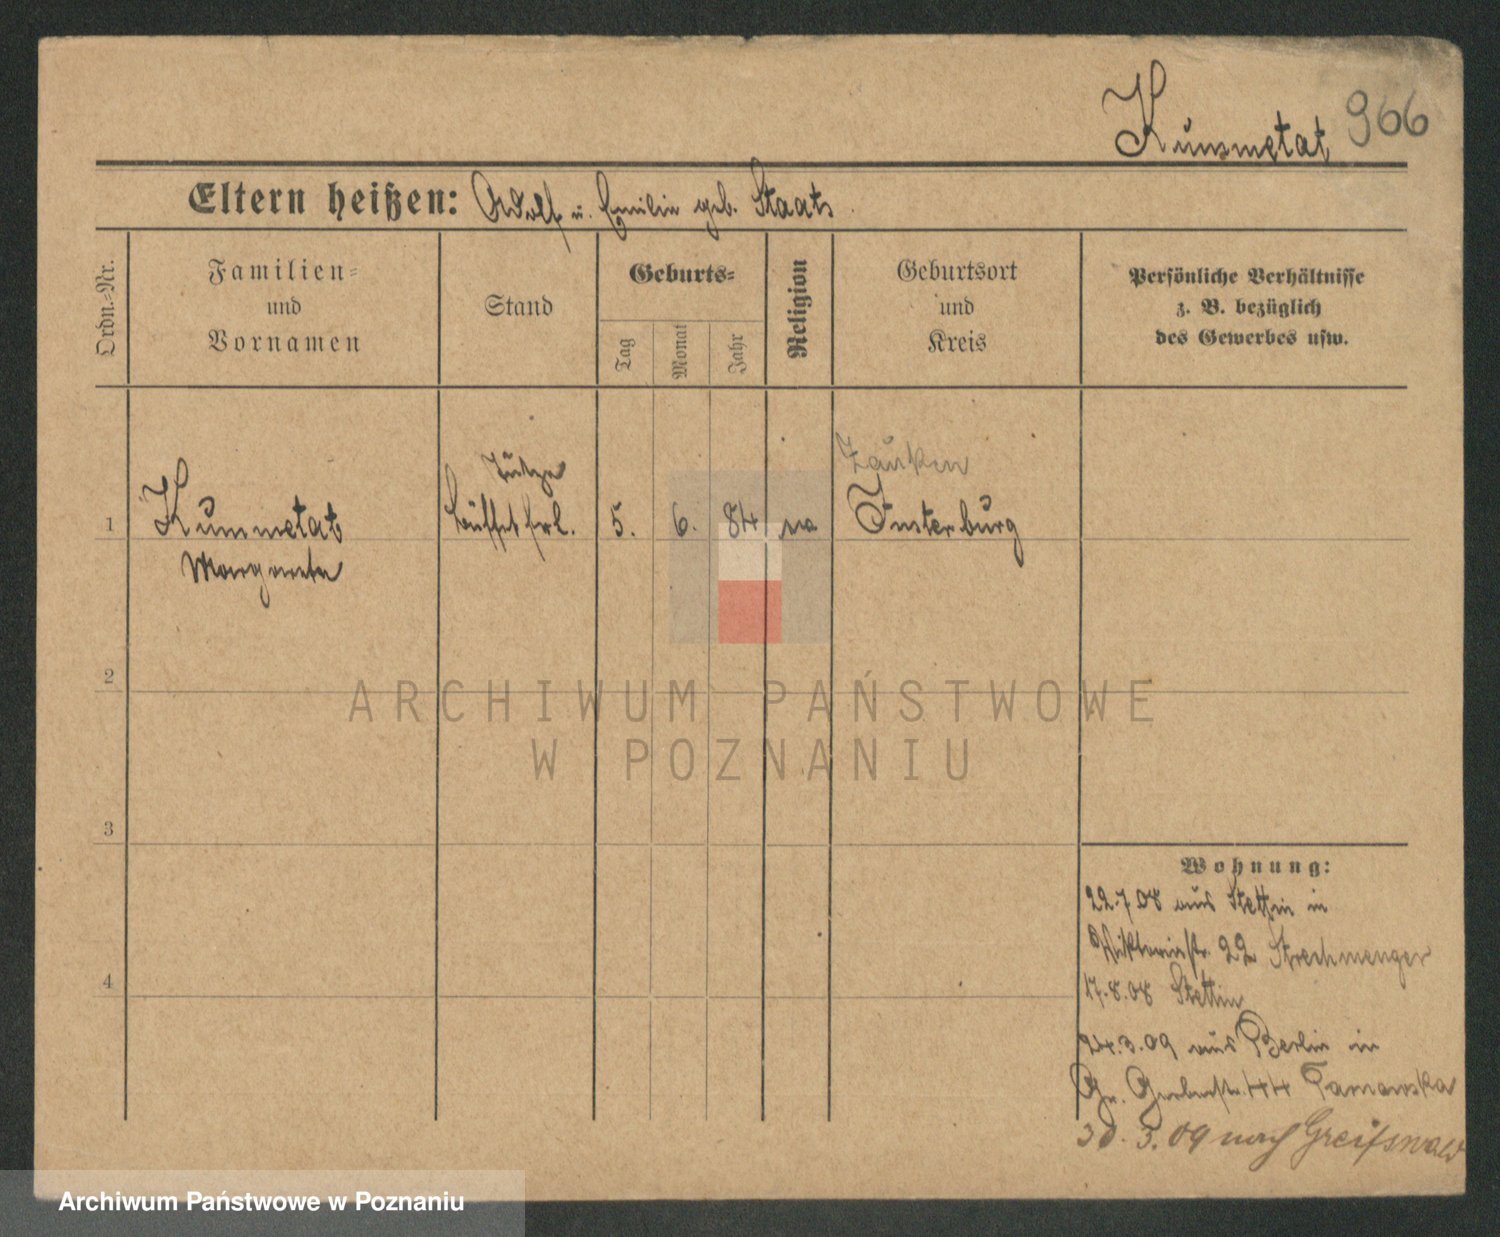 Kummetat 966
Eltern heißen: Adolf u. Emilie geb. Staats
Ordn.-Nr.
Familien-
und
Vornamen
Stand
Geburts-
Tag
Monat
Jahr
Religion
Geburtsort
und
Kreis
Persönliche Verhältnisse
z. B. bezüglich
des Gewerbes usw.
1
Kummetat
Margarete
Stütze
Büffetfrl.
5.
6.
84
ev
Insterburg
2
3
4
Wohnung:
22.7.08 aus Stettin in
Viktoriastr. 22 Strechmenger
17.8.08 Stettin
24.3.09 aus Berlin in
Gr. Gerberstr. 44 Tarnowska
30.3.09 nach Greifswald
ARCHIWUM PAŃSTWOWE
W POZNANIU
Archiwum Państwowe w Poznaniu